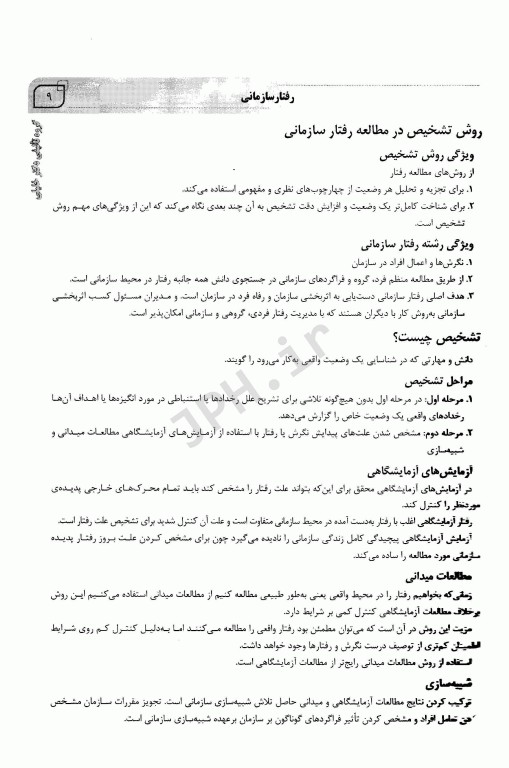 رفتارسازمانی
۹
روش تشخیص در مطالعه رفتار سازمانی
ویژگی روش تشخیص
از روش‌های مطالعه رفتار
۱. برای تجزیه و تحلیل هر وضعیت از چهارچوب‌های نظری و مفهومی استفاده می‌کند.
۲. برای شناخت کامل‌تر یک وضعیت و افزایش دقت تشخیص به آن چند بعدی نگاه می‌کند که این از ویژگی‌های مهم روش
تشخیص است.
ویژگی رشته رفتار سازمانی
۱. نگرش‌ها و اعمال افراد در سازمان
۲. از طریق مطالعه منظم فرد، گروه و فراگردهای سازمانی در جستجوی دانش همه جانبه رفتار در محیط سازمانی است.
۳. هدف اصلی رفتار سازمانی دست‌یابی به اثربخشی سازمان و رفاه فرد در سازمان است. و مدیران مسئول کسب اثربخشی
سازمانی به‌روش کار با دیگران هستند که با مدیریت رفتار فردی، گروهی و سازمانی امکان‌پذیر است.
تشخیص چیست؟
دانش و مهارتی که در شناسایی یک وضعیت واقعی به‌کار می‌رود را گویند.
مراحل تشخیص
۱. مرحله اول: در مرحله اول بدون هیچ‌گونه تلاشی برای تشریح علل رخدادها یا استنباطی در مورد انگیزه‌ها یا اهداف آن‌ها
رخدادهای واقعی یک وضعیت خاص را گزارش می‌دهد.
۲. مرحله دوم: مشخص شدن علت‌های پیدایش نگرش یا رفتار با استفاده از آزمایش‌های آزمایشگاهی مطالعات میدانی و
شبیه‌سازی
آزمایش‌های آزمایشگاهی
در آزمایش‌های آزمایشگاهی محقق برای این‌که بتواند علت رفتار را مشخص کند باید تمام محرک‌های خارجی پدیده‌ی
موردنظر را کنترل کند.
رفتار آزمایشگاهی اغلب با رفتار به‌دست آمده در محیط سازمانی متفاوت است و علت آن کنترل شدید برای تشخیص علت رفتار است.
آزمایش آزمایشگاهی پیچیدگی کامل زندگی سازمانی را نادیده می‌گیرد چون برای مشخص کردن علت بروز رفتار پدیده
سازمانی مورد مطالعه را ساده می‌کند.
مطالعات میدانی
زمانی‌که بخواهیم رفتار را در محیط واقعی یعنی به‌طور طبیعی مطالعه کنیم از مطالعات میدانی استفاده می‌کنیم این روش
برخلاف مطالعات آزمایشگاهی کنترل کمی بر شرایط دارد.
مزیت این روش در آن است که می‌توان مطمئن بود رفتار واقعی را مطالعه می‌کنند اما به‌دلیل کنترل کم روی شرایط
اطمینان کم‌تری از توصیف درست نگرش و رفتارها وجود خواهد داشت.
استفاده از روش مطالعات میدانی رایج‌تر از مطالعات آزمایشگاهی است.
شبیه‌سازی
ترکیب کردن نتایج مطالعات آزمایشگاهی و میدانی حاصل تلاش شبیه‌سازی سازمانی است. تجویز مقررات سازمان مشخص
تعامل افراد و مشخص کردن تأثیر فراگردهای گوناگون بر سازمان برعهده شبیه‌سازی سازمانی است.
JPH.ir